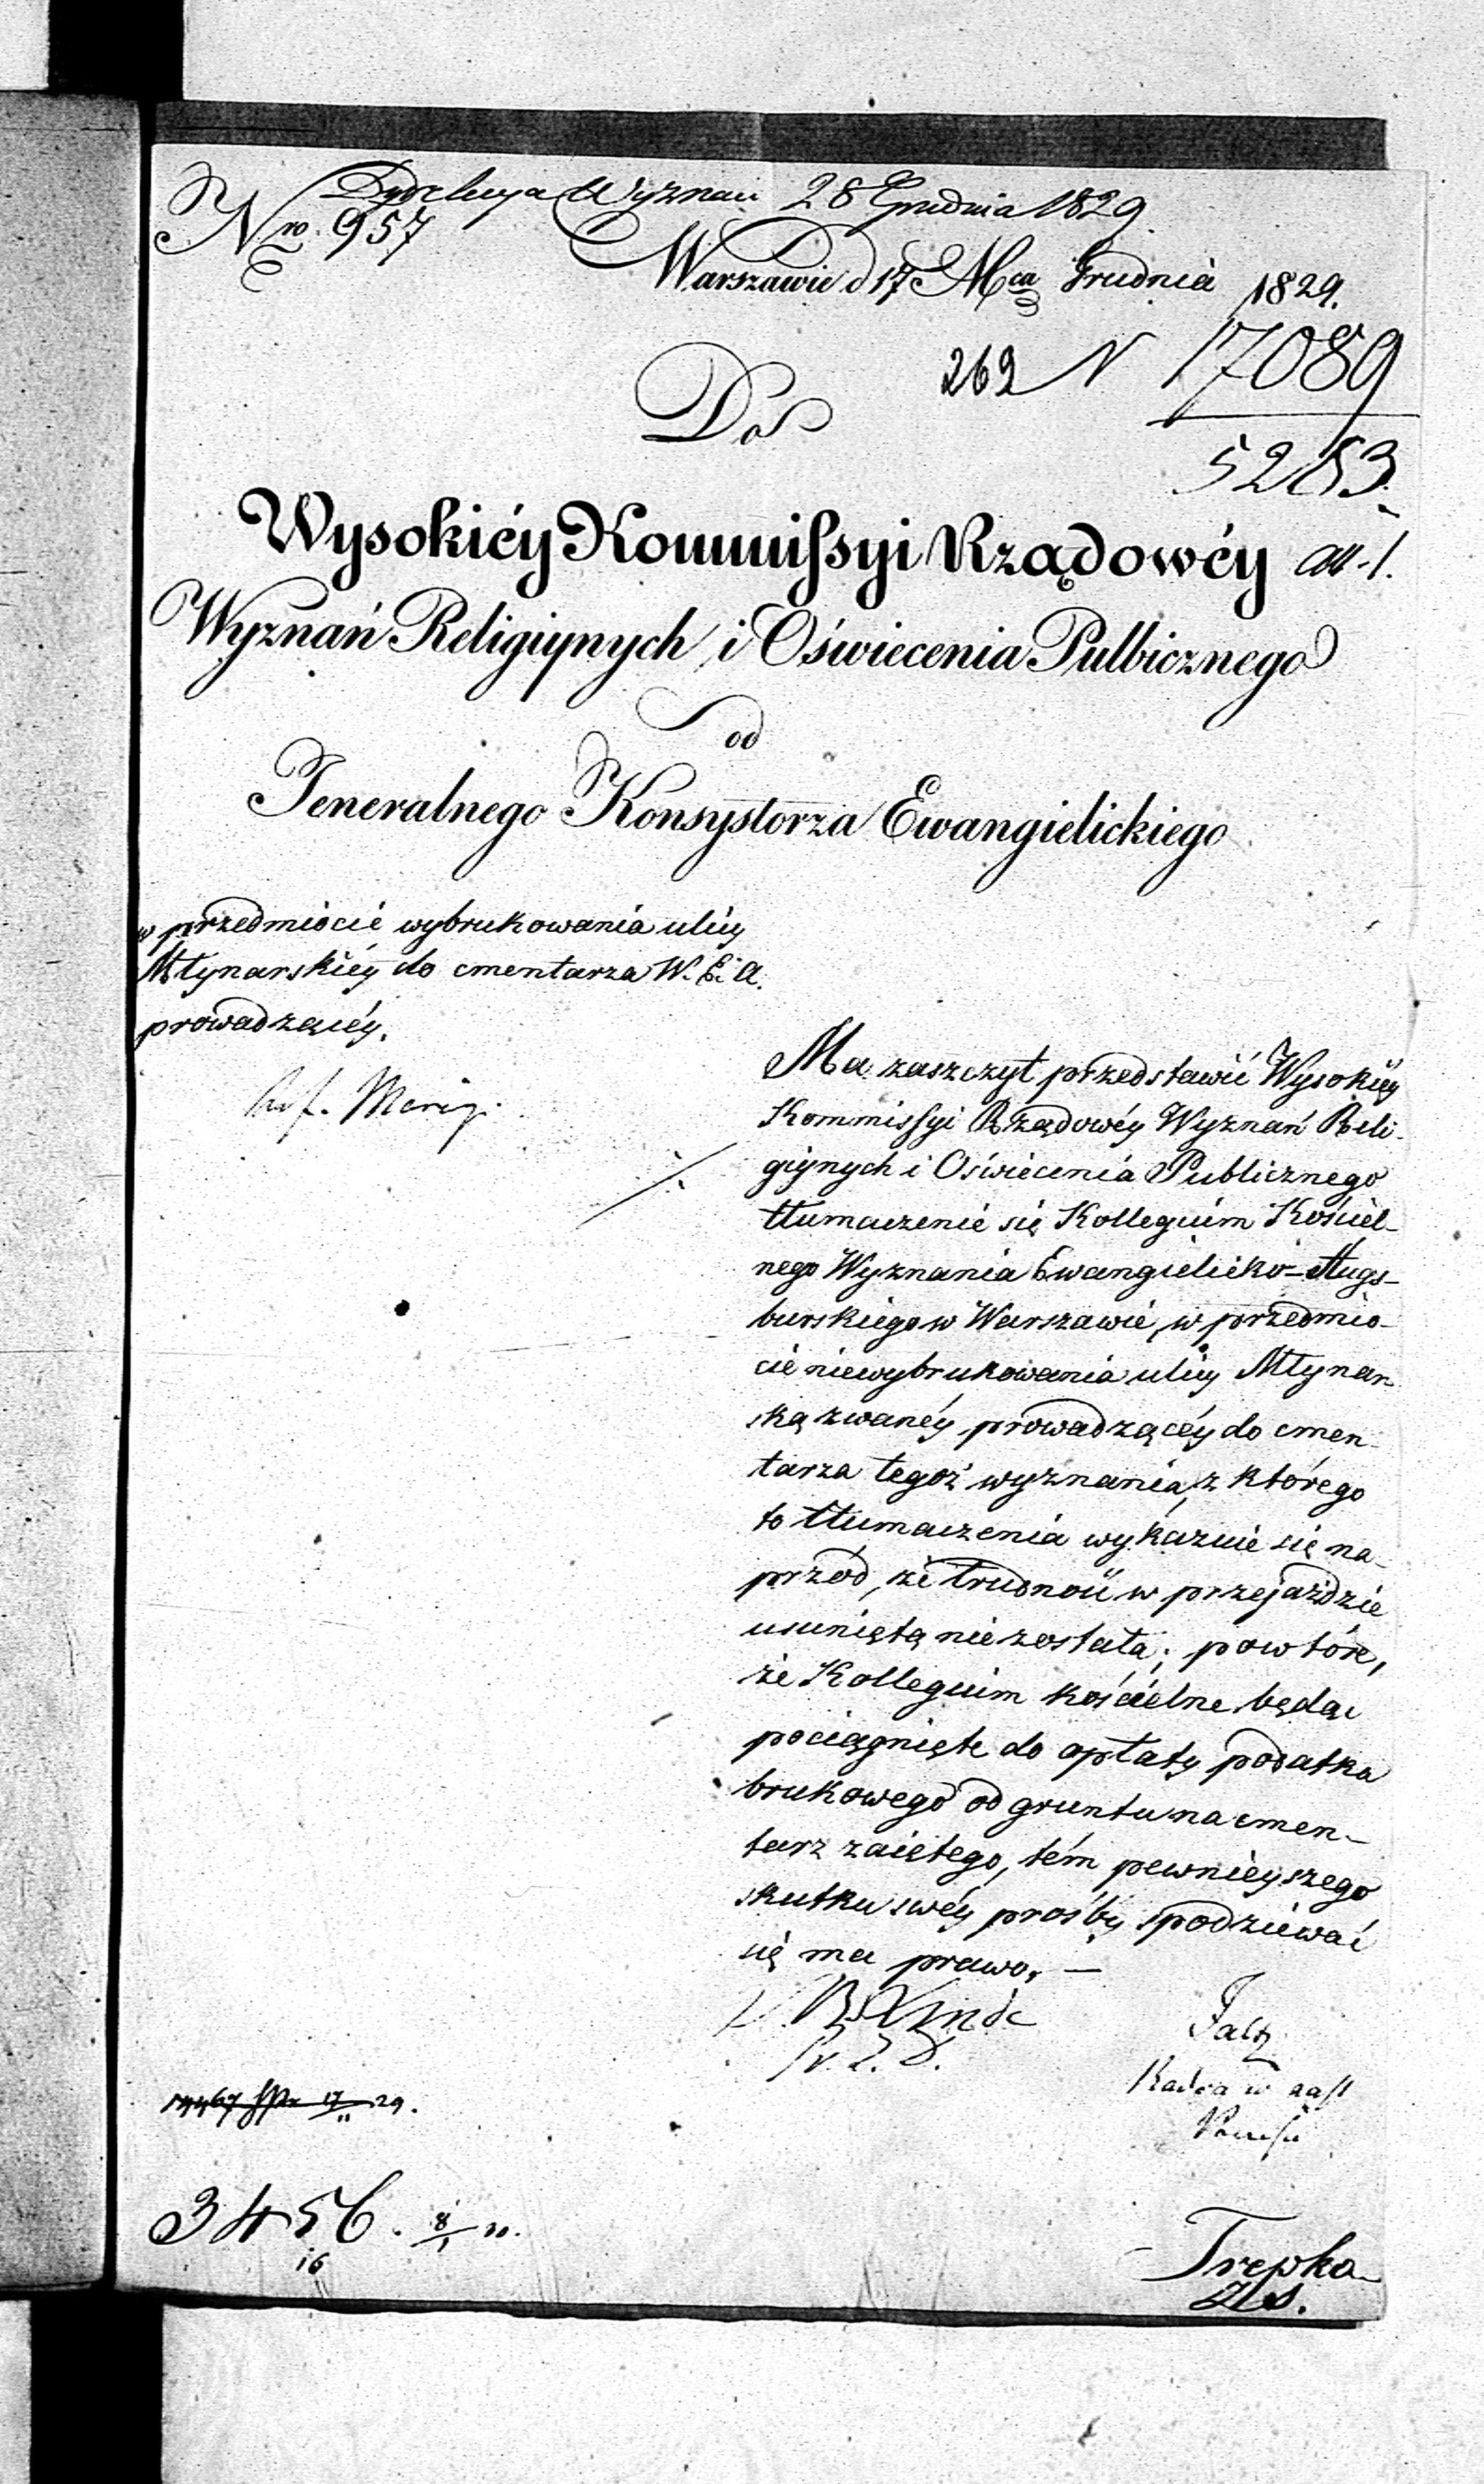 Dyrekcya Wyznań 28 Grudnia 1829
Nro. 957
Warszawie d 17 Mca Grudnia 1829.
262 N 17089
5283.
Do
Wysokiéy Kommissyi Rządowéy
Wyznań Religiynych i Oświecenia Pulbicznego
od
Jeneralnego Konsystorza Ewangielickiego
w przedmiocie wybrukowania ulicy
Młynarskiéy do cmentarza W. E. A.
prowadzącéy.
Ma zaszczyt przedstawić Wysokiéy
Kommissyi Rządowéy Wyznań Reli-
giynych i Oświecenia Publicznego
tłumaczenie się Kollegium Kościel-
nego Wyznania Ewangielicko-Augs-
burskiego w Warszawie, w przedmio-
cie niewybrukowania ulicy Młynar
ską zwanéy prowadzącéy do cmen-
tarza tegoż wyznania, z którego
to tłumaczenia wykazuie się na-
przód, że trudność w przejaździe
usuniętą nie została; powtóre,
że Kollegium kościelne będąc
pociągnięte do opłaty podatka
brukowego od gruntu na cmen-
tarz zaiętego, tém pewnieyszego
skutku swéy prośby spodziewać
się ma prawo. —
Radca w zast
Prezesa
3456. 8/1 30.
16
Trepka
ZS.